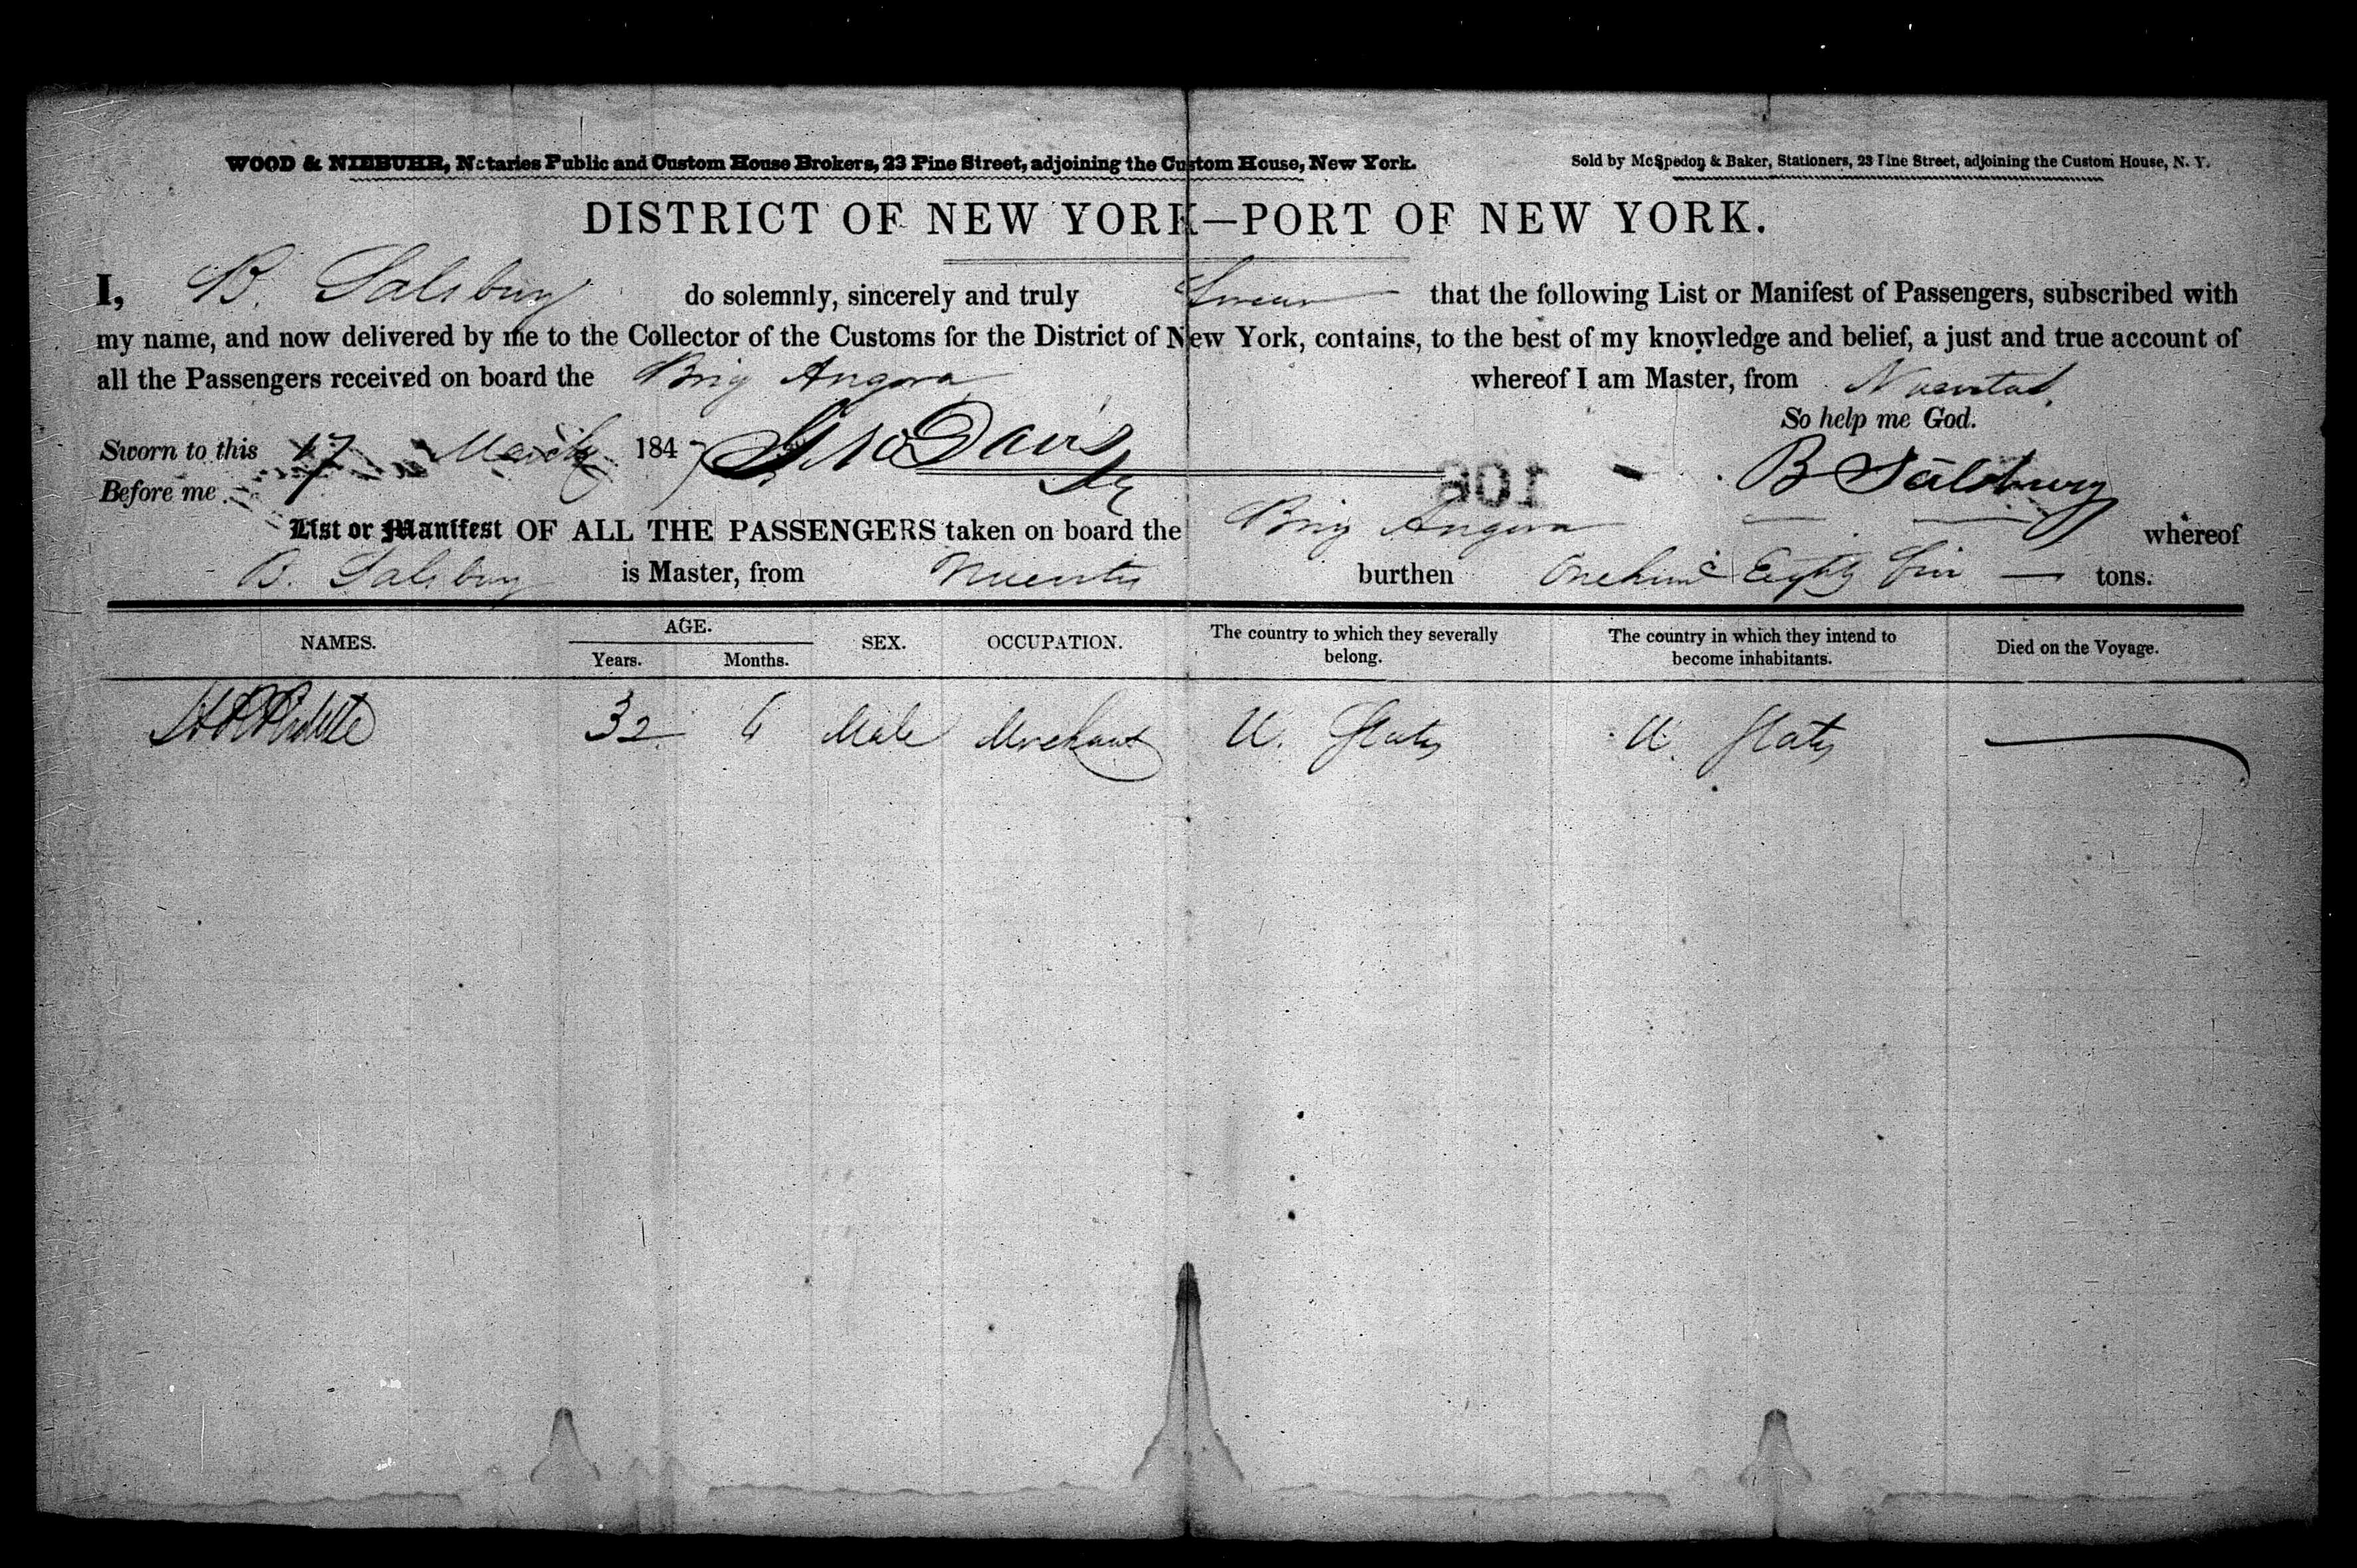 WOOD & NIEBUHR, Notaries Public and Custom House Brokers, 23 Pine Street, adjoining the Custom House, New York.
Sold by McSpedon & Baker, Stationers, 23 Pine Street, adjoining the Custom House, N. Y.
DISTRICT OF NEW YORK—PORT OF NEW YORK.
I, B. Salsbury do solemnly, sincerely and truly Swear that the following List or Manifest of Passengers, subscribed with
my name, and now delivered by me to the Collector of the Customs for the District of New York, contains, to the best of my knowledge and belief, a just and true account of
all the Passengers received on board the Brig Angora whereof I am Master, from Nuevitas,
So help me God.
Sworn to this 17 March 1847 Geo Davis
Before me B Salsbury
106
List or Manifest OF ALL THE PASSENGERS taken on board the Brig Angora whereof
B. Salsbury is Master, from Nuevitas burthen One hund Eighty tons.
NAMES. AGE. SEX. OCCUPATION. The country to which they severally belong. The country in which they intend to become inhabitants. Died on the Voyage.
Years. Months.
32 6 Male Merchant U. States U. States